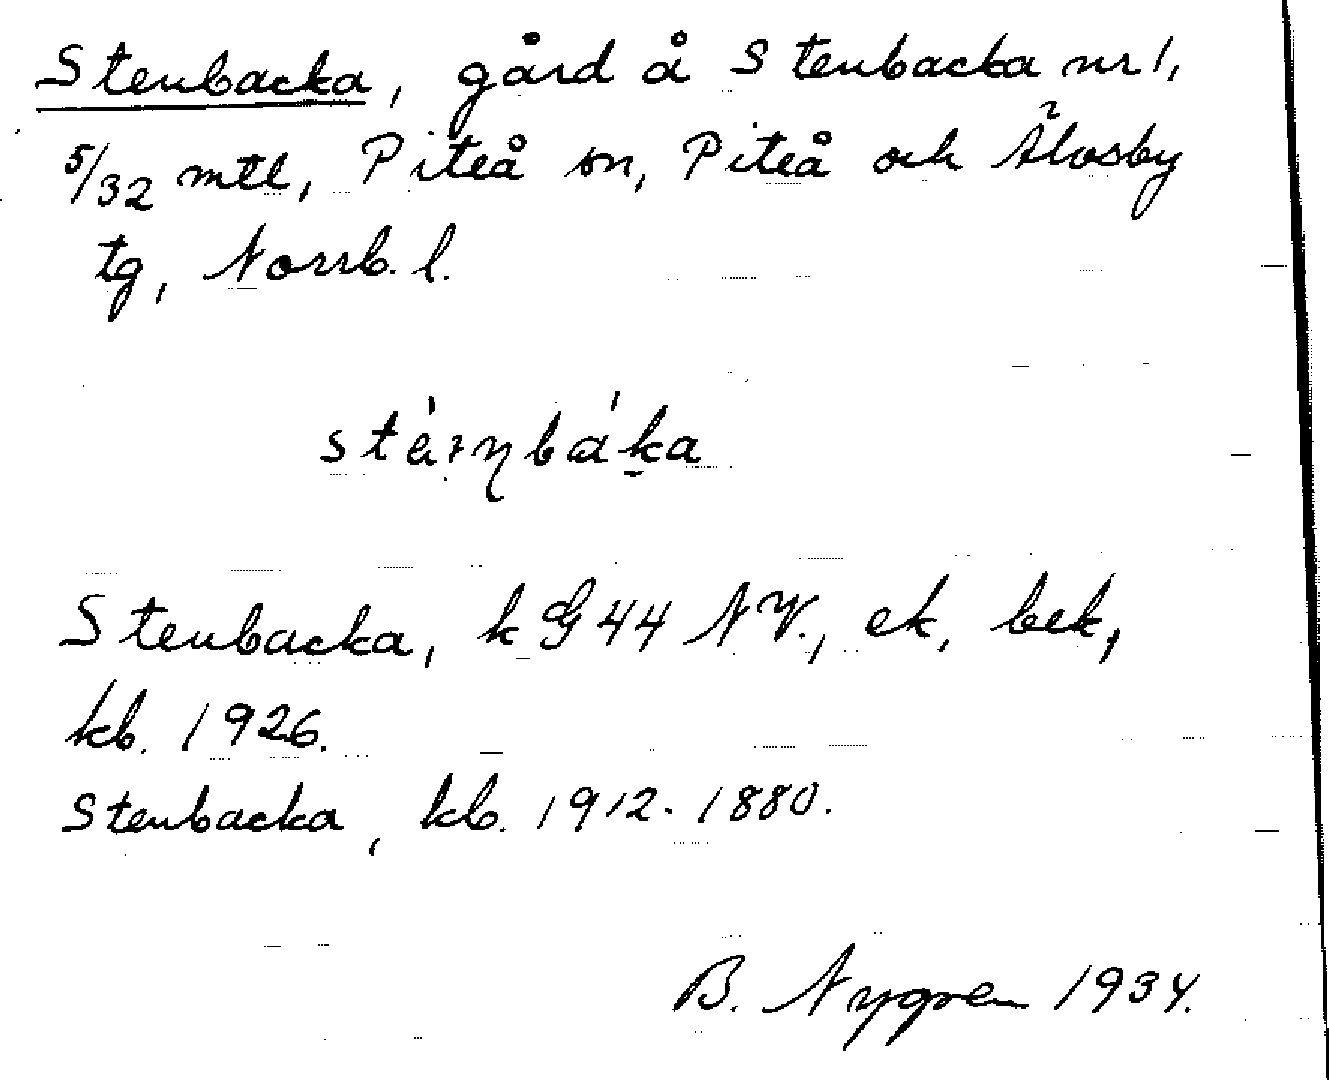 Stenbacka, gård å Stenbacka nr 1,
5/32 mtl, Piteå sn, Piteå och Älvsby
tg, Norrb. l.
Stenbacka, k G 44 NV., ek, bek,
kb. 1926.
Stenbacka, kb. 1912. 1880.
B. Nygren 1934.